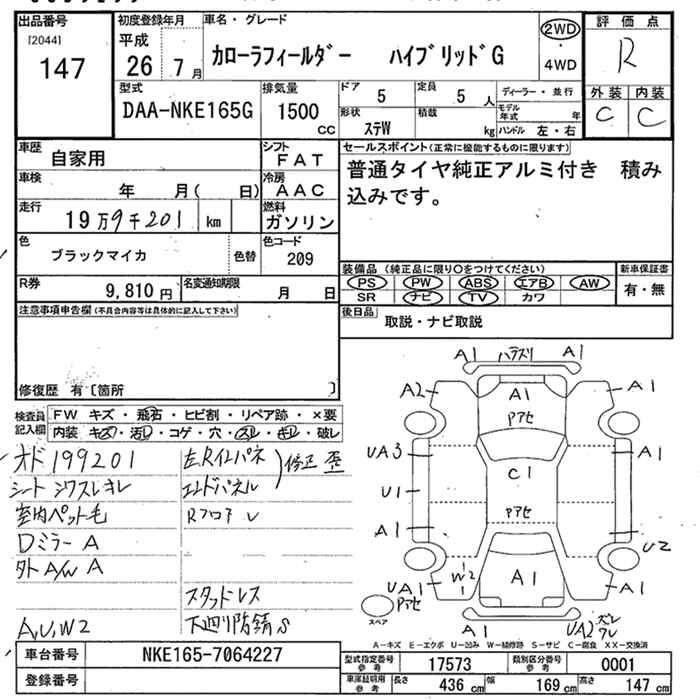 出品番号
[2044]
147
初度登録年月
平成
26年 7月
車名・グレード
カローラフィールダー ハイブリッドG
2WD
・
4WD
評価点
R
外装 内装
C C
型式
DAA-NKE165G
排気量
1500
CC
ドア 5
定員 5人
形状 ステW
積載 kg
ディーラー・並行
モデル年式 年
ハンドル 左・右
車歴
自家用
シフト
FAT
車検
年 月( 日)
冷房
AAC
走行
19万9千201 km
燃料
ガソリン
色
ブラックマイカ
色替
色コード
209
R券
9,810円
名変通知期限
月 日
セールスポイント(正常に機能するものに限ります)
普通タイヤ純正アルミ付き 積み
込みです。
装備品(純正品に限り○をつけてください)
PS PW ABS エアB AW
SR ナビ TV カワ
新車保証書
有・無
後日品
取説・ナビ取説
注意事項申告欄(不具合内容等は具体的に記入して下さい)
修復歴 有〔箇所 〕
検査員
記入欄
FW キズ・飛石・ヒビ割・リペア跡・×要
内装 キズ・汚レ・コゲ・穴・スレ・キレ・破レ
オド199201
シートシワスレキレ
室内ペット毛
Dミラー A
外A/W A
A,U,W2
左Rインパネ
エンドパネル
修正 歪
Rフロア 〃
スタッドレス
下廻り防錆S
A1 ハラスリ A1
A2 A1 A1
Pアセ
UA3 A1
C1
U1
Pアセ
A1 U2
W2
1
A1
UA1 A1
Pアセ
スペア
A1 UA2 ズレ
ワレ
A-キズ E-エクボ U-凹み W-補修跡 S-サビ C-腐食 X・XX-交換済
車台番号
NKE165-7064227
登録番号
型式指定番号
参考
17573
類別区分番号
参考
0001
車庫証明用
参考
長さ 436 cm
幅 169 cm
高さ 147 cm